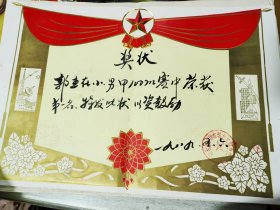 奖状
郭玉在小男甲100M赛中荣获
第一名、特发此状以资鼓励
一九八九.